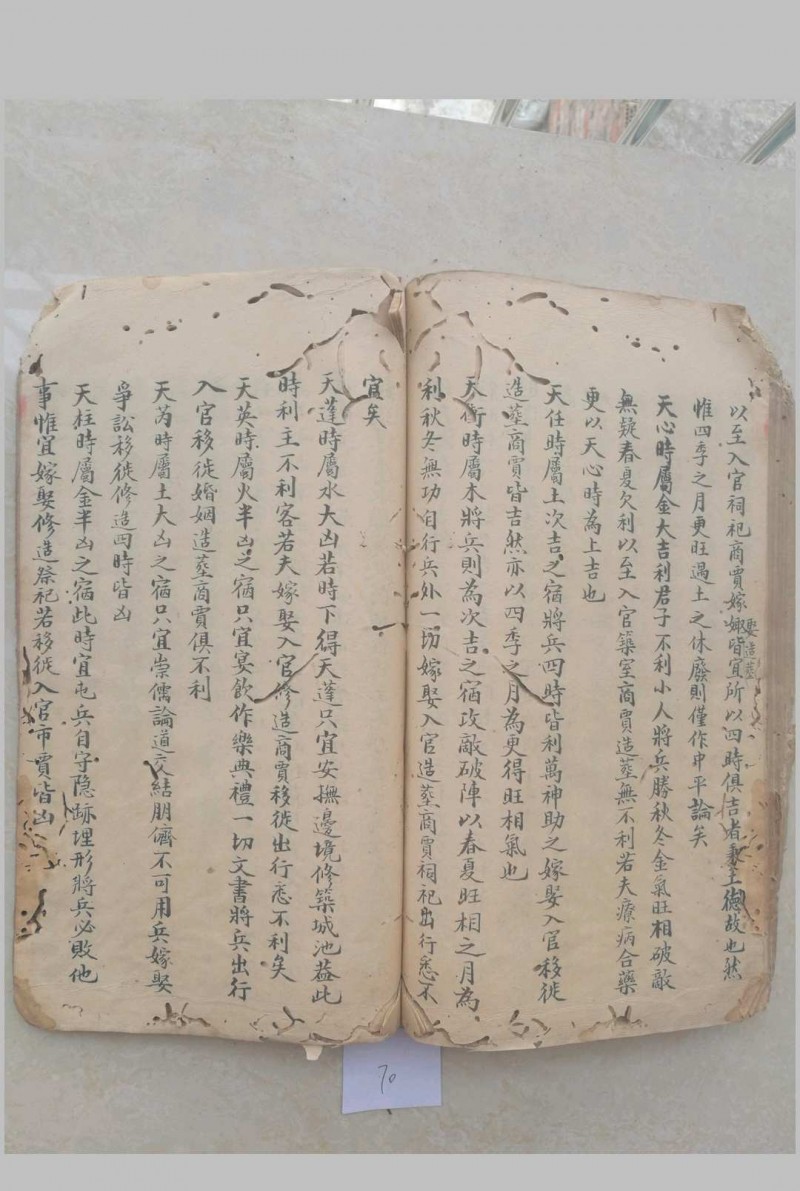 以至入官祠祀商賈嫁娵皆宜所以四時俱吉者秉土德故也然
娶造塟
惟四季之月更旺過土之休廢則僅作中平論矣
天心時屬金大吉利君子不利小人將兵勝秋冬金氣旺相破敵
無疑春夏欠利以至入官築室商賈造塟無不利若夫療病合藥
更以天心時為上吉也
天任時屬土次吉之宿將兵四時皆利萬神助之嫁娶入官移徙
造塟商賈皆吉然亦以四季之月為更得旺相氣也
天衝時屬木將兵則為次吉之宿攻敵破陣以春夏旺相之月為
利秋冬無功自行兵外一切嫁娶入官造塟商賈祠祀出行悉不
宜矣
天蓬時屬水大凶若時下得天蓬只宜安撫邊境修築城池葢此
時利主不利客若夫嫁娶入官修造商賈移徙出行悉不利矣
天英時屬火半凶之宿只宜宴飲作樂典禮一切文書將兵出行
入官移徙婚姻造塟商賈俱不利
天芮時屬土大凶之宿只宜崇儒論道交結朋儕不可用兵嫁娶
爭訟移徙修造四時皆凶
天柱時屬金半凶之宿此時宜屯兵自守隐跡埋形將兵必敗他
事惟宜嫁娶修造祭祀若移徙入官市賈皆凶
70